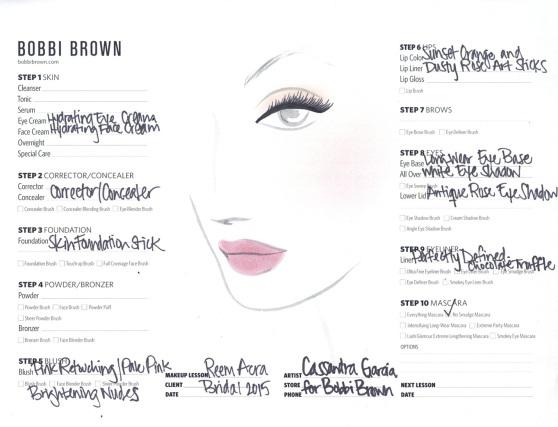 BOBBI BROWN
bobbibrown.com
STEP 1 SKIN
Cleanser
Tonic
Serum
Eye Cream Hydrating Eye Cream
Face Cream Hydrating Face Cream
Overnight
Special Care
STEP 2 CORRECTOR/CONCEALER
Corrector
Concealer Corrector/Concealer
Concealer Brush Concealer Blending Brush Eye Blender Brush
STEP 3 FOUNDATION
Foundation Skin Foundation Stick
Foundation Brush Touch up Brush Full Coverage Face Brush
STEP 4 POWDER/BRONZER
Powder
Powder Brush Face Brush Powder Puff
Sheer Powder Brush
Bronzer
Bronzer Brush Face Blender Brush
STEP 5 BLUSH
Blush Pink Retouching/Pale Pink
Blush Brush Face Blender Brush Sheer Powder Brush
Brightening Nudes
MAKEUP LESSON Reem Acra
CLIENT Bridal 2015
DATE
ARTIST Cassandra Garcia
STORE for Bobbi Brown
PHONE
STEP 6 LIPS
Lip Color Sunset Orange and
Lip Liner Dusty Rose Art Sticks
Lip Gloss
Lip Brush
STEP 7 BROWS
Eye Brow Brush Eye Definer Brush
STEP 8 EYES
Eye Base Longwear Eye Base
All Over White Eye Shadow
Eye Sweep Brush
Lower Lid Antique Rose Eye Shadow
Eye Shadow Brush Cream Shadow Brush
Angle Eye Shadow Brush
STEP 9 EYELINER
Liner Perfectly Defined
Chocolate Truffle
Ultra Fine Eyeliner Brush Eye Liner Brush Eye Smudge Brush
Eye Definer Brush Smokey Eye Liner Brush
STEP 10 MASCARA
Everything Mascara No Smudge Mascara
Intensifying Long-Wear Mascara Extreme Party Mascara
Lash Glamour Extreme Lengthening Mascara Smokey Eye Mascara
OPTIONS
NEXT LESSON
DATE